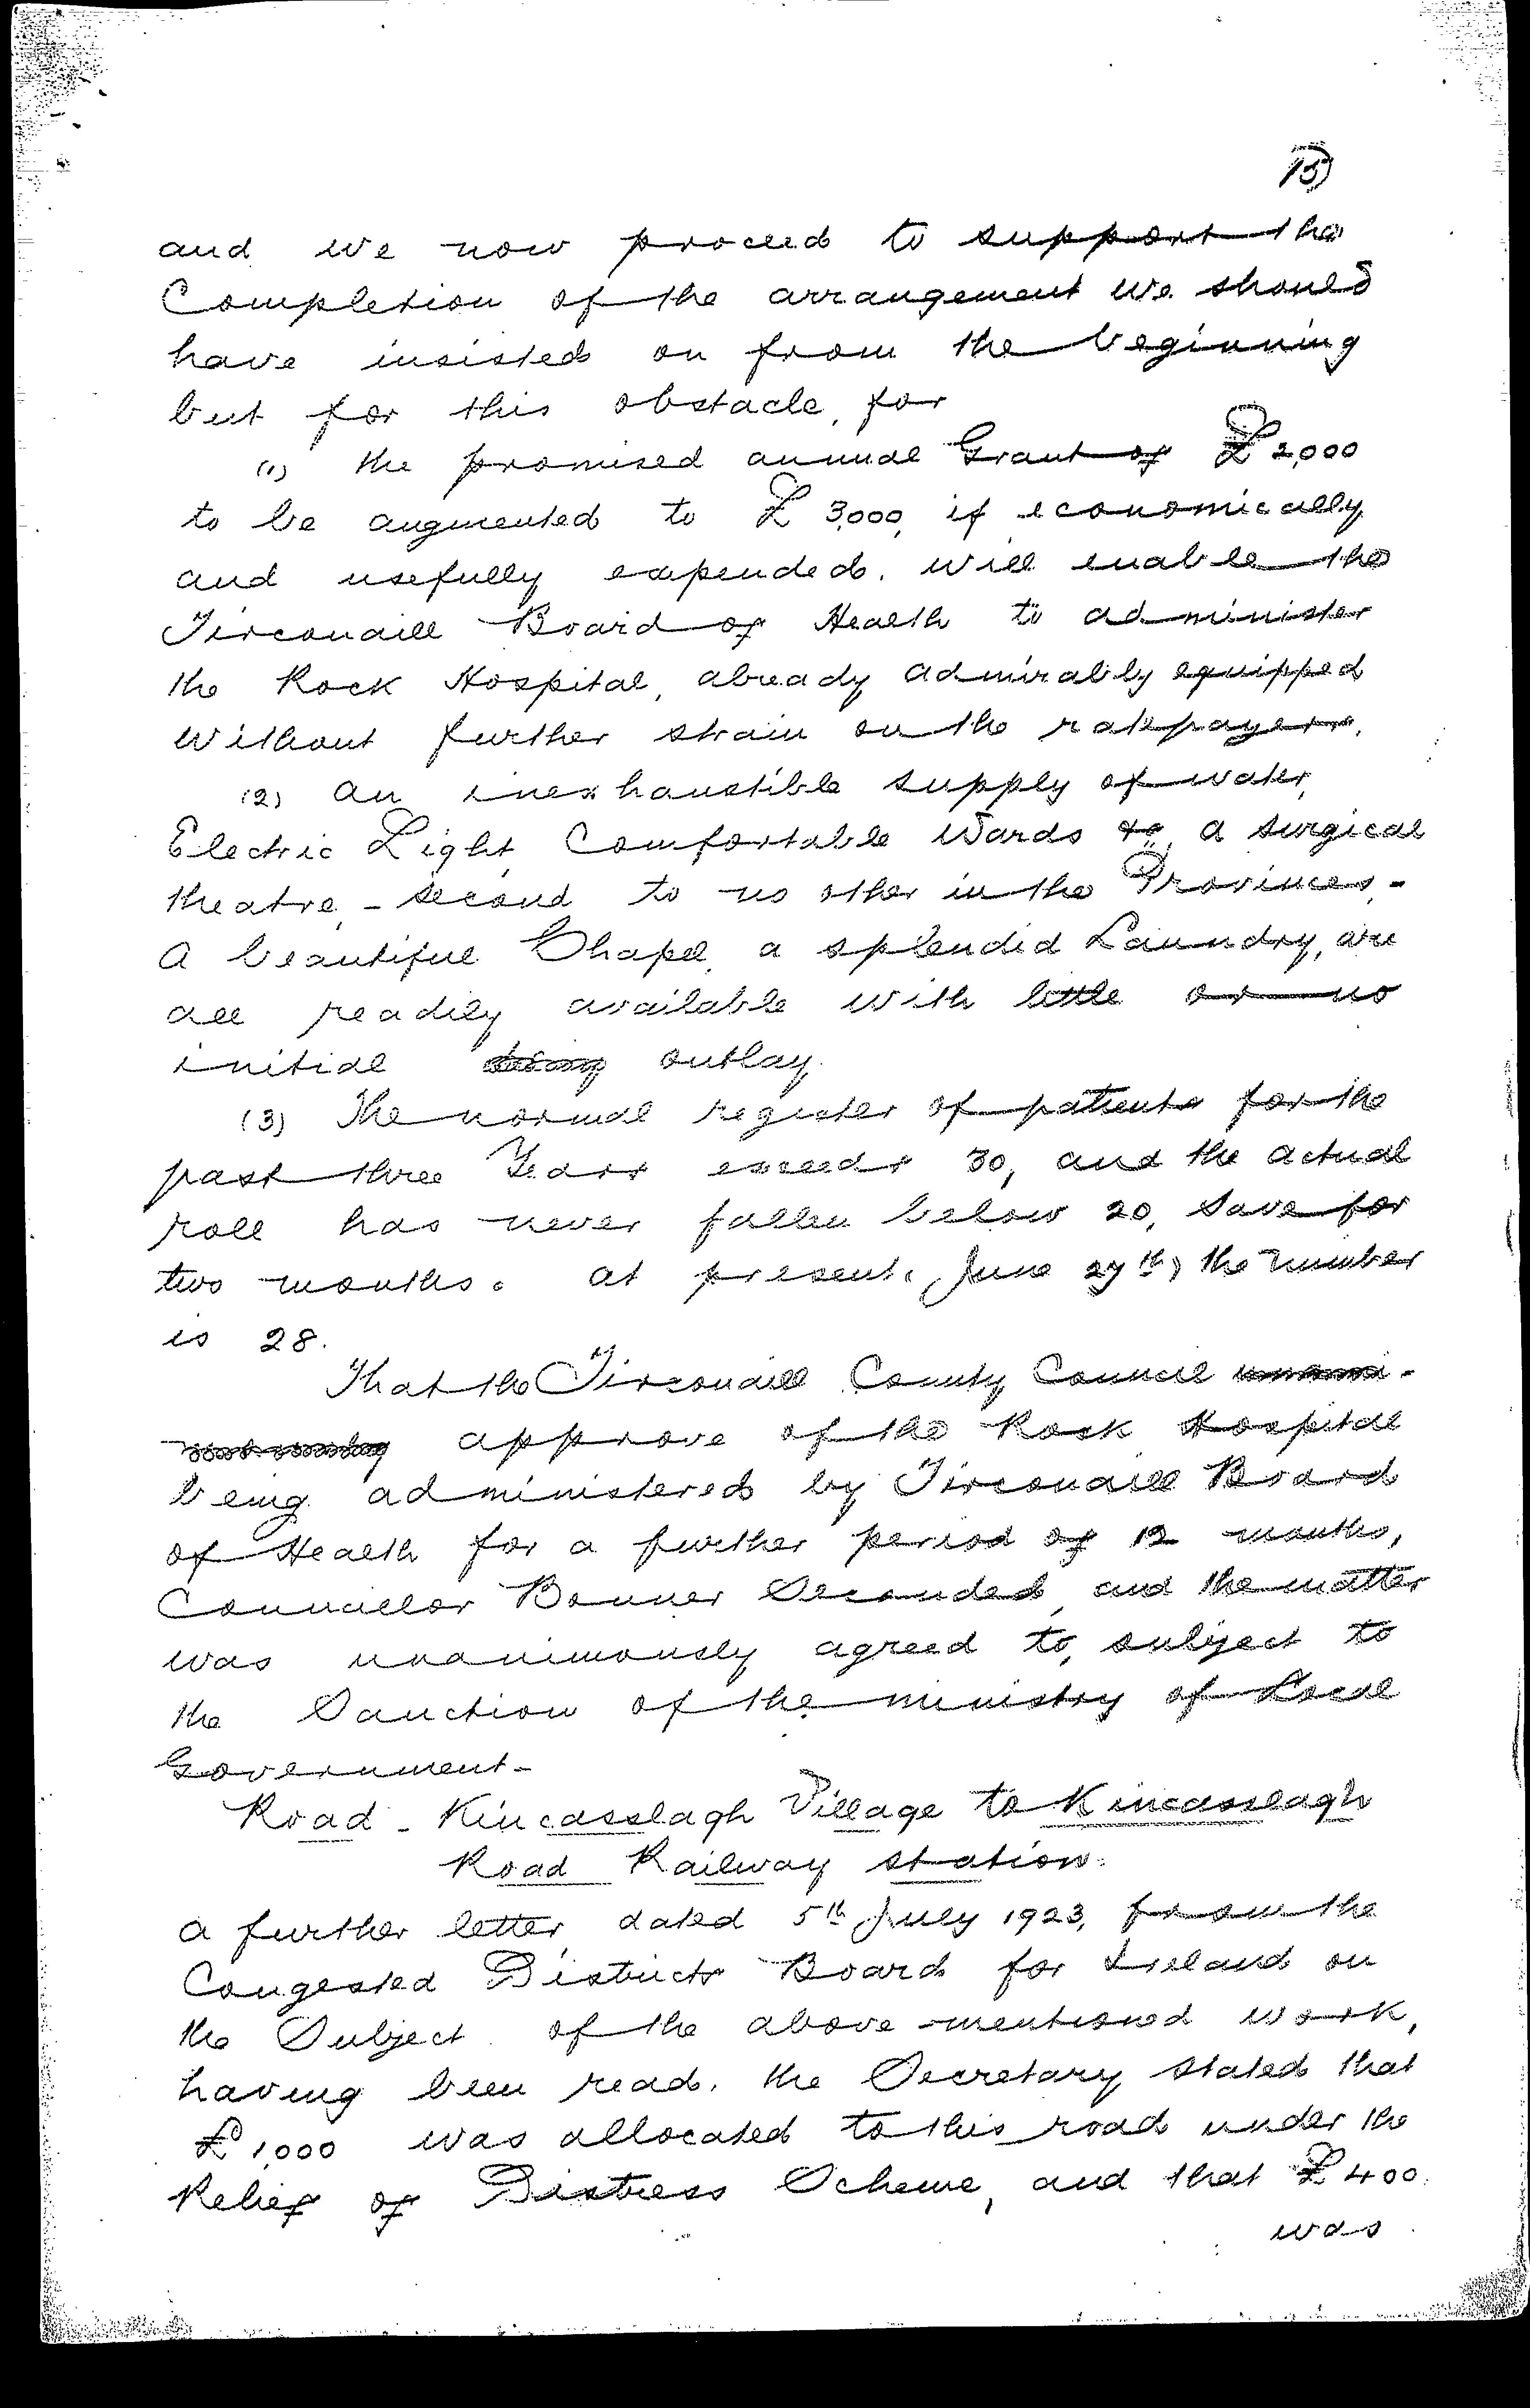 15)
and we now proceed to support the
Completion of the arrangement we should
have insisted on from the beginning
but for this obstacle, for
(1) the promised annual Grant of £2,000
to be augmented to £3,000, if economically
and usefully expended, will enable the
Tirconaill Board of Health to administer
the Rock Hospital, already admirably equipped
without further strain on the ratepayers.
(2) An inexhaustible supply of water,
Electric Light, Comfortable Wards &c, a surgical
theatre, - second to no other in the Provinces, -
a beautiful Chapel, a splendid Laundry, are
all readily available with little or no
initial outlay.
(3) The normal register of patients for the
past three Years exceeds 30, and the actual
roll has never fallen below 20, save for
two months. At present, (June 27th) the number
is 28.
That the Tirconaill County Council
approve of the Rock Hospital
being administered by Tirconaill Board
of Health for a further period of 12 months,
Councillor Bonner Seconded, and the matter
was unanimously agreed to, subject to
the Sanction of the ministry of Local
Government -
Road - Kincasslagh Village to Kincasslagh
Road Railway station.
A further letter, dated 5th July 1923, from the
Congested Districts Board for Ireland on
the Subject of the above mentioned work,
having been read, the Secretary stated that
£1,000 was allocated to this road under the
Relief of Distress Scheme, and that £400
was